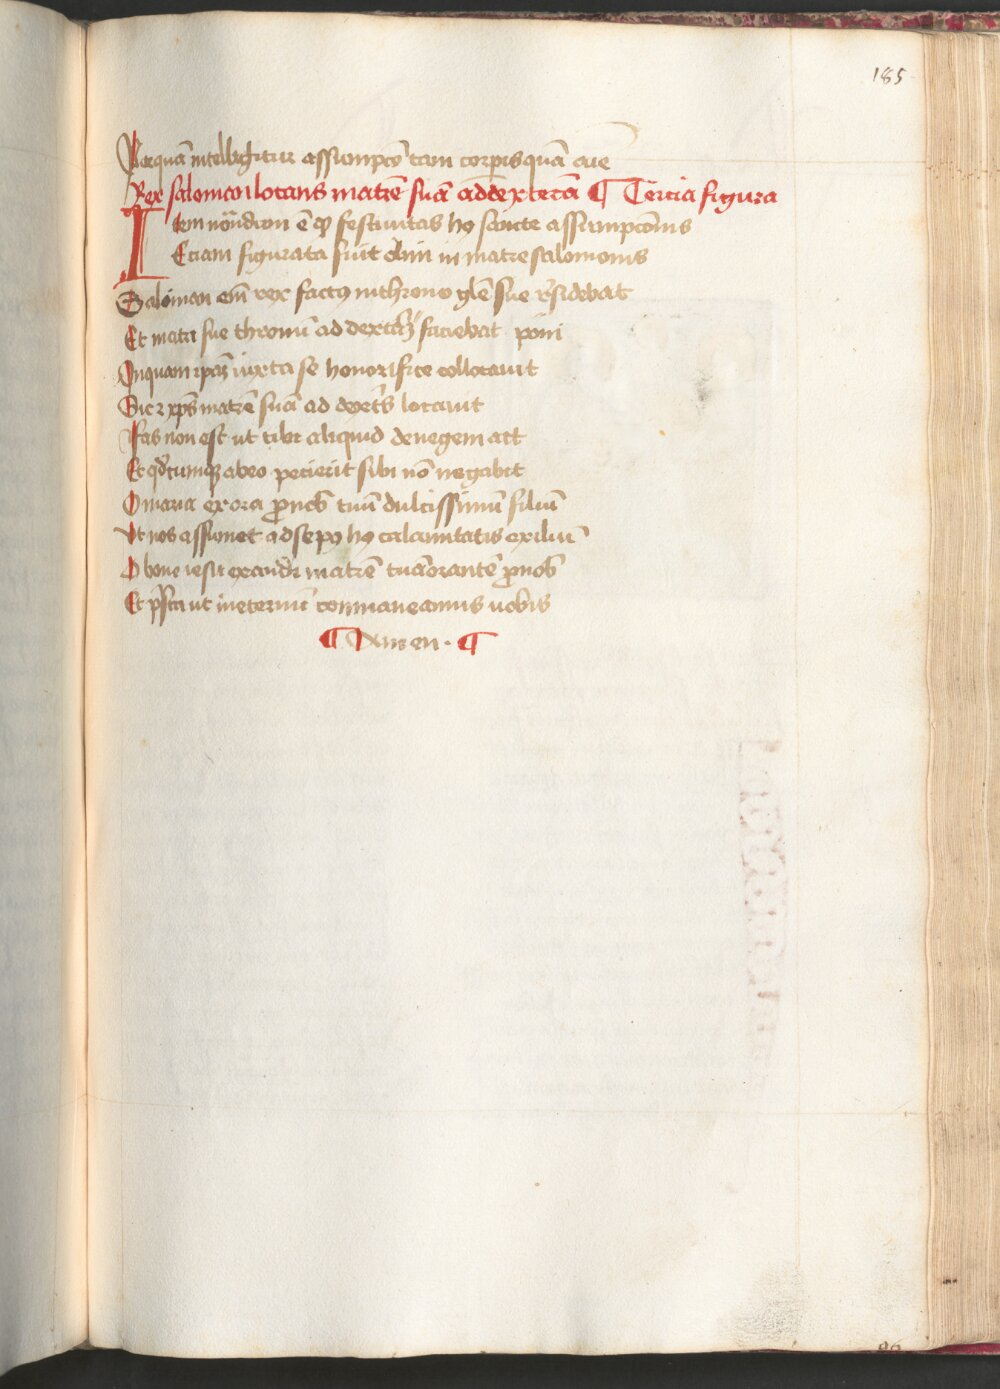 185
Per quā intelligitur assumpcō tam corpis quā aīe
Rex salomon locans matrē suā ad dexterā ¶ Tercia figura
Item nōndum ē ꝙ festiuitas hꝯ sancte assumpcōnis
Eciam figurata fuit olim in matre salomonis
Salomon em̄ rex factꝯ in throno glē sue r̄sidebat
Et matri sue thronū ad dextrā faciebat poni
In quam ipaꝫ iuxta se honorifice collocauit
Sic ⁊ xp̄s matrē suā ad dext̄s locauit
Fas non est ut tibi aliquid denegem ait
Et qd̄cumqꝫ ab eo petierit sibi nō negabit
O maria exora ꝓ nob̄ tuū dulcissimū filiū
Ut nos assumet ad se pꝯ hꝯ calamitatis exiliū
O bone iesu exaudi matrē tuā orantē ꝓ nob̄
Et p̄sta ut in eternū commaneamus uob̄is
¶ Amen · ¶